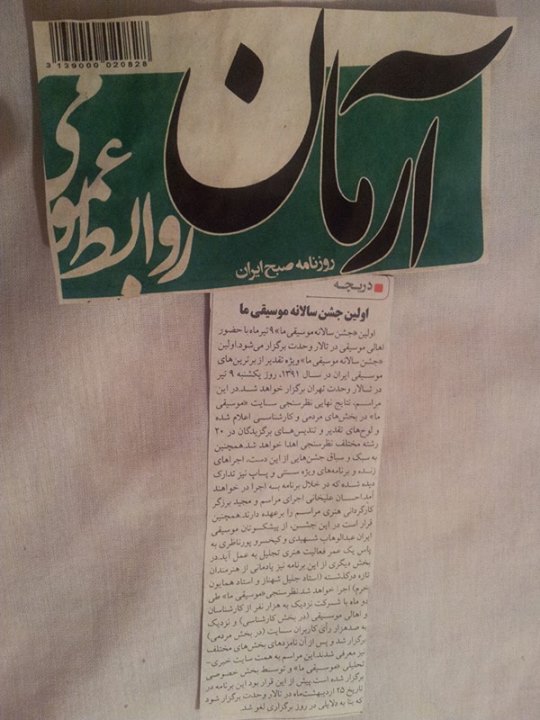 3 139000 020828
آرمان
روابط عمومی
روزنامه صبح ایران
دریچه
اولین جشن سالانه موسیقی ما
اولین «جشن سالانه موسیقی ما» ۹ تیرماه با حضور
اهالی موسیقی در تالار وحدت برگزار می‌شود. اولین
«جشن سالانه موسیقی ما» ویژه تقدیر از برترین‌های
موسیقی ایران در سال ۱۳۹۱، روز یکشنبه ۹ تیر
در تالار وحدت تهران برگزار خواهد شد. در این
مراسم، نتایج نهایی نظرسنجی سایت «موسیقی
ما» در بخش‌های مردمی و کارشناسی اعلام شده
و لوح‌های تقدیر و تندیس‌های برگزیدگان در ۲۰
رشته مختلف نظرسنجی اهدا خواهد شد. همچنین
به سبک و سیاق جشن‌هایی از این دست، اجراهای
زنده و برنامه‌های ویژه سنتی و پاپ نیز تدارک
دیده شده که در خلال برنامه به اجرا در خواهند
آمد. احسان علیخانی اجرای مراسم و مجید برزگر
کارگردانی هنری مراسم را برعهده دارند. همچنین
قرار است در این جشن، از پیشکسوتان موسیقی
ایران عبدالوهاب شهیدی و کیخسرو پورناظری به
پاس یک عمر فعالیت هنری تجلیل به عمل آید. در
بخش دیگری از این برنامه نیز یادمانی از هنرمندان
تازه درگذشته (استاد جلیل شهناز و استاد همایون
خرم) اجرا خواهد شد. نظرسنجی «موسیقی ما» طی
دو ماه با شرکت نزدیک به هزار نفر از کارشناسان
و اهالی موسیقی (در بخش کارشناسی) و نزدیک
به صدهزار رأی کاربران سایت (در بخش مردمی)
برگزار شد و پس از آن نامزدهای بخش‌های مختلف
نیز معرفی شدند. این مراسم به همت سایت خبری-
تحلیلی «موسیقی ما» و توسط بخش خصوصی
برگزار شده است. پیش از این قرار بود این برنامه در
تاریخ ۲۵ اردیبهشت‌ماه در تالار وحدت برگزار شود
که بنا به دلایلی در روز برگزاری لغو شد.